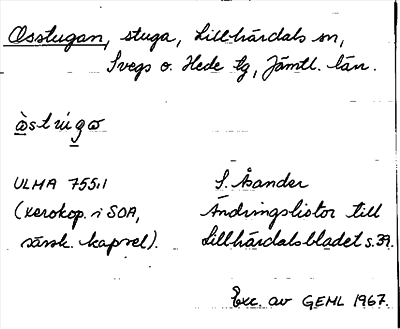 Osstugan, stuga, Lillhärdals sn,
Svegs o. Hede tg, Jämtl. län.
ùstúgo
ULMA 755:1
(xerokop. i SOA,
särsk. kapsel).
S. Åsander
Ändringslistor till
Lillhärdalsbladet s. 39.
Exc. av GEHL 1967.